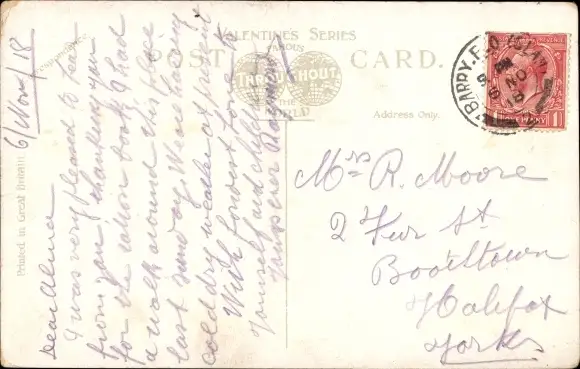 VALENTINES SERIES
FAMOUS
THROUGHOUT
THE
WORLD
POST CARD.
Address Only.
Printed in Great Britain
BARRY
NO
18
PENNY
6/Nov/18
Dear Alma
I was very pleased to hear
from you, thanking you
for the book I had
a walk around this place
last sunday. We are having
cold dry weather at present
With fondest love to
yourself and child
yours ever
Mrs R. Moore
2 Fur St
Boothtown
Halifax
Yorks